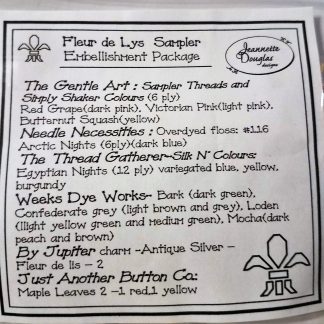 Fleur de Lys Sampler
Embellishment Package
Jeannette
Douglas
designs
The Gentle Art : Sampler Threads and
Simply Shaker Colours (6 ply)
Red Grape(dark pink), Victorian Pink(light pink),
Butternut Squash(yellow)
Needle Necessities : Overdyed floss: #116
Arctic Nights (6ply)(dark blue)
The Thread Gatherer-Silk N' Colours:
Egyptian Nights (12 ply) variegated blue, yellow,
burgundy
Weeks Dye Works- Bark (dark green),
Confederate grey (light brown and grey), Loden
(llight yellow green and medium green), Mocha(dark
peach and brown)
By Jupiter charm -Antique Silver -
Fleur de lis - 2
Just Another Button Co:
Maple Leaves 2 -1 red,1 yellow